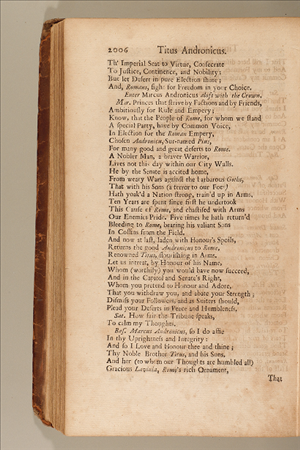 2006 Titus Andronicus.
Th' Imperial Seat to Virtue, Consecrate
To Justice, Continence, and Nobility:
But let Desert in pure Election shine;
And, Romans, fight for Freedom in your Choice.
Enter Marcus Andronicus aloft with the Crown.
Mar. Princes that strive by Factions and by Friends,
Ambitiously for Rule and Empery:
Know, that the People of Rome, for whom we stand
A special Party, have by Common Voice,
In Election for the Roman Empery,
Chosen Andronicus, Sur-named Pius,
For many good and great deserts to Rome.
A Nobler Man, a braver Warrior,
Lives not this day within our City Walls.
He by the Senate is accited home,
From weary Wars against the barbarous Goths,
That with his Sons (a terror to our Foes)
Hath yoak'd a Nation strong, train'd up in Arms.
Ten Years are spent since first he undertook
This Cause of Rome, and chastised with Arms
Our Enemies Pride. Five times he hath return'd
Bleeding to Rome, bearing his valiant Sons
In Coffins from the Field.
And now at last, laden with Honour's Spoils,
Returns the good Andronicus to Rome,
Renowned Titus, flourishing in Arms.
Let us intreat, by Honour of his Name,
Whom (worthily) you would have now succeed,
And in the Capitol and Senate's Right,
Whom you pretend to Honour and Adore,
That you withdraw you, and abate your Strength;
Dismiss your Followers, and as Suiters should,
Plead your Deserts in Peace and Humbleness.
Sat. How fair the Tribune speaks,
To calm my Thoughts.
Bas. Marcus Andronicus, so I do affie
In thy Uprightness and Integrity:
And so I Love and Honour thee and thine;
Thy Noble Brother Titus, and his Sons,
And her (to whom our Thoughts are humbled all)
Gracious Lavinia, Rome's rich Ornament,
That